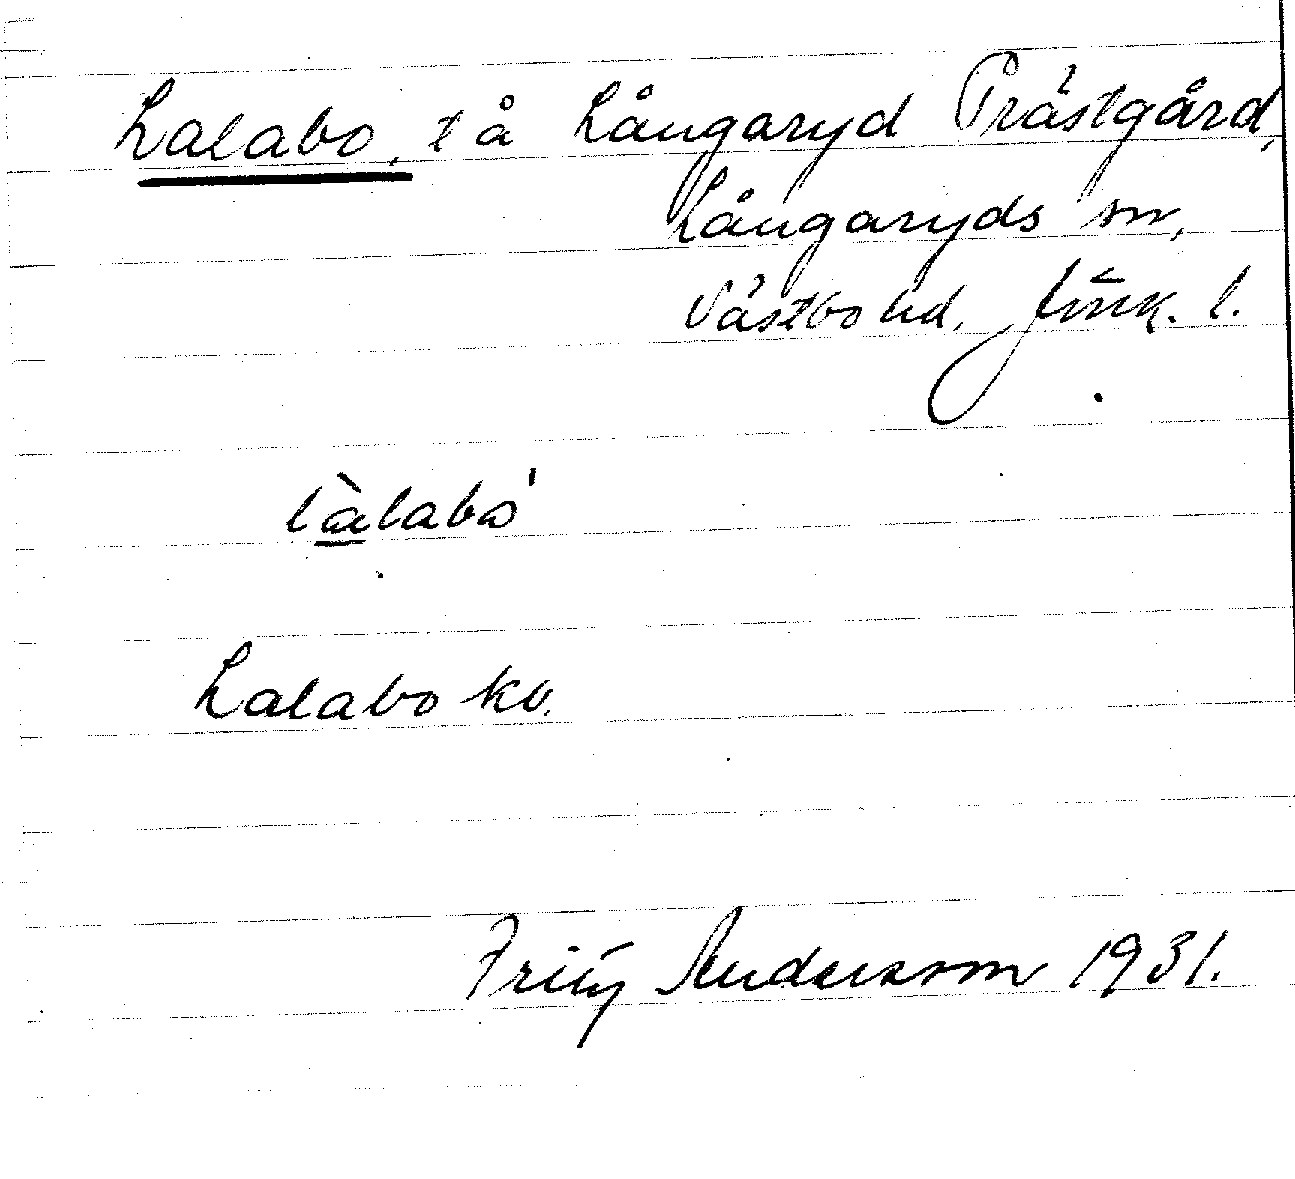 Lalabo, t å Långaryd Prästgård,
Långaryds sn,
Västbo hd. Jönk. l.
làlabo'
Lalabo kv.
Fritz Andersson 1931.